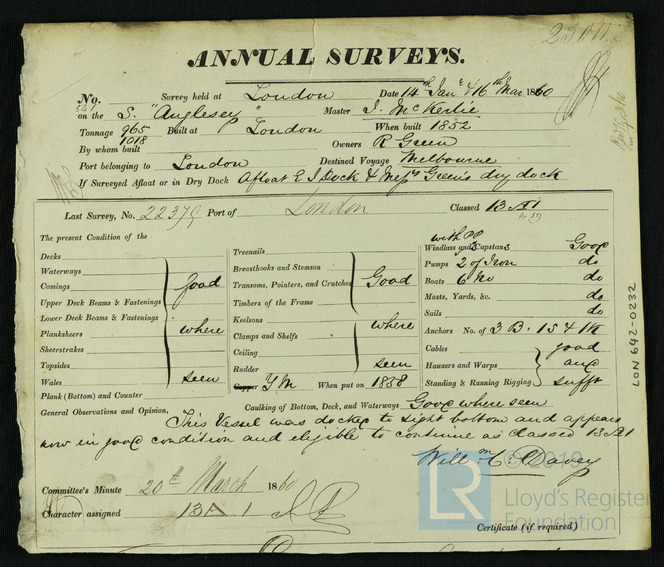 ANNUAL SURVEYS.
No. 541 Survey held at London Date 14th Jany & 16th Mar 1860
on the S. "Anglesey" Master J. McKerlie
Tonnage 965 1018 Built at London When built 1852
By whom built Owners R Green
Port belonging to London Destined Voyage Melbourne
If Surveyed Afloat or in Dry Dock Afloat E I Dock & Messrs Green's dry dock
Last Survey, No. 22379 Port of London Classed 13 A 1
The present Condition of the
Decks
Waterways
Comings
Upper Deck Beams & Fastenings
Lower Deck Beams & Fastenings
Planksheers
Sheerstrakes
Topsides
Wales
good
where
seen
Plank (Bottom) and Counter
Treenails
Breasthooks and Stemson
Transoms, Pointers, and Crutches
Timbers of the Frame
Good
Keelsons
Clamps and Shelfs
Ceiling
Rudder
where
seen
Copper Y M When put on 1858
Windlass and Capstans Good
Pumps 2 of Iron do
Boats 6 No do
Masts, Yards, &c. do
Sails do
Anchors No. of 3 B. 1 S & 1 K
Cables
Hawsers and Warps
Standing & Running Rigging
good
and
sufft
Caulking of Bottom, Deck, and Waterways Good where seen
General Observations and Opinion,
This Vessel was docked to sight bottom and appears
now in good condition and eligible to continue as classed 13 A 1
Willm C Davey
Committee's Minute 20th March 1860
Character assigned 13 A 1
Certificate (if required)
LON 642-0232
LR
© 2019
Lloyd's Register
Foundation